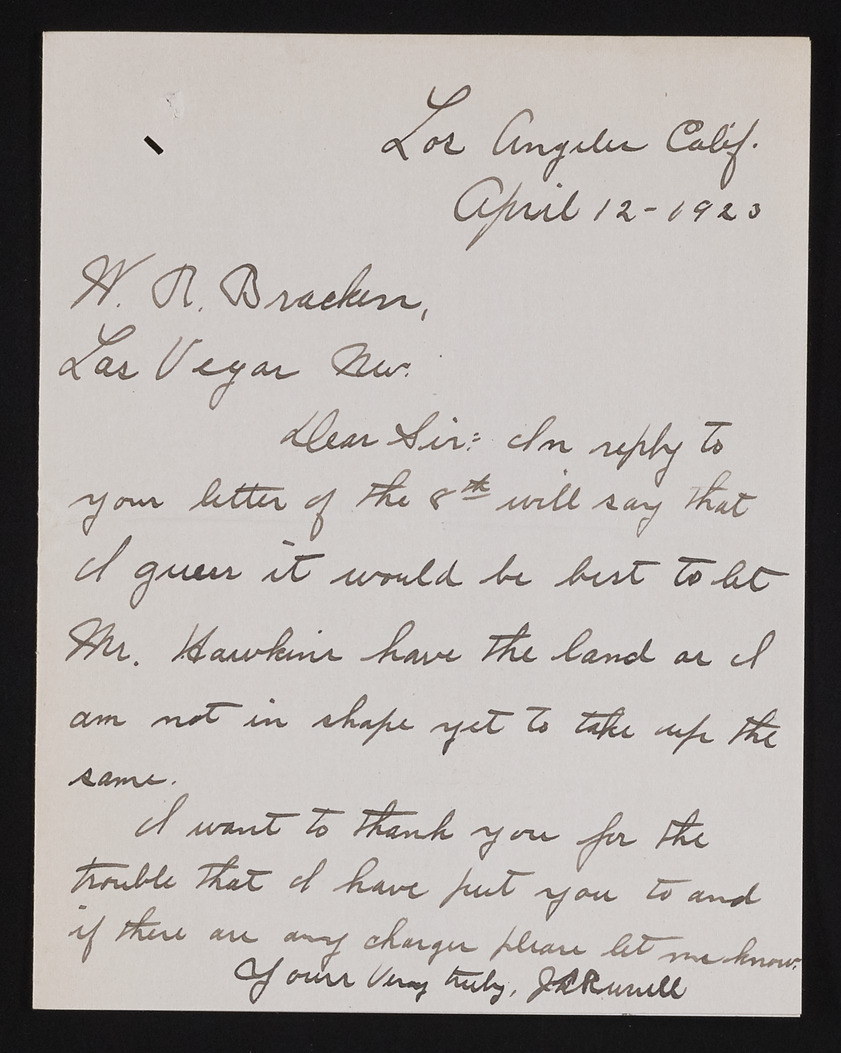 Los Angeles Calif.
April 12-1923
W. R. Bracken,
Las Vegas Nev.
Dear Sir:- In reply to
your letter of the 8th will say that
I guess it would be best to let
Mr. Hawkins have the land as I
am not in shape yet to take up the
same.
I want to thank you for the
trouble that I have put you to and
if there are any charges please let me know.
Yours Very truly, J R Russell